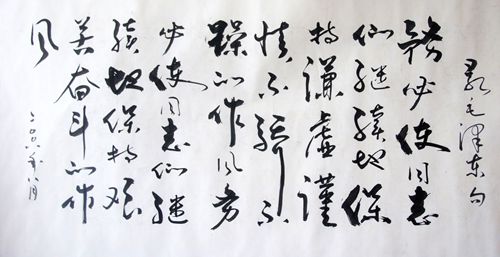 录毛泽东句
务必使同志
们继续地保
持谦虚谨
慎不骄不
躁的作风务
必使同志们继
续地保持艰
苦奋斗的作
风